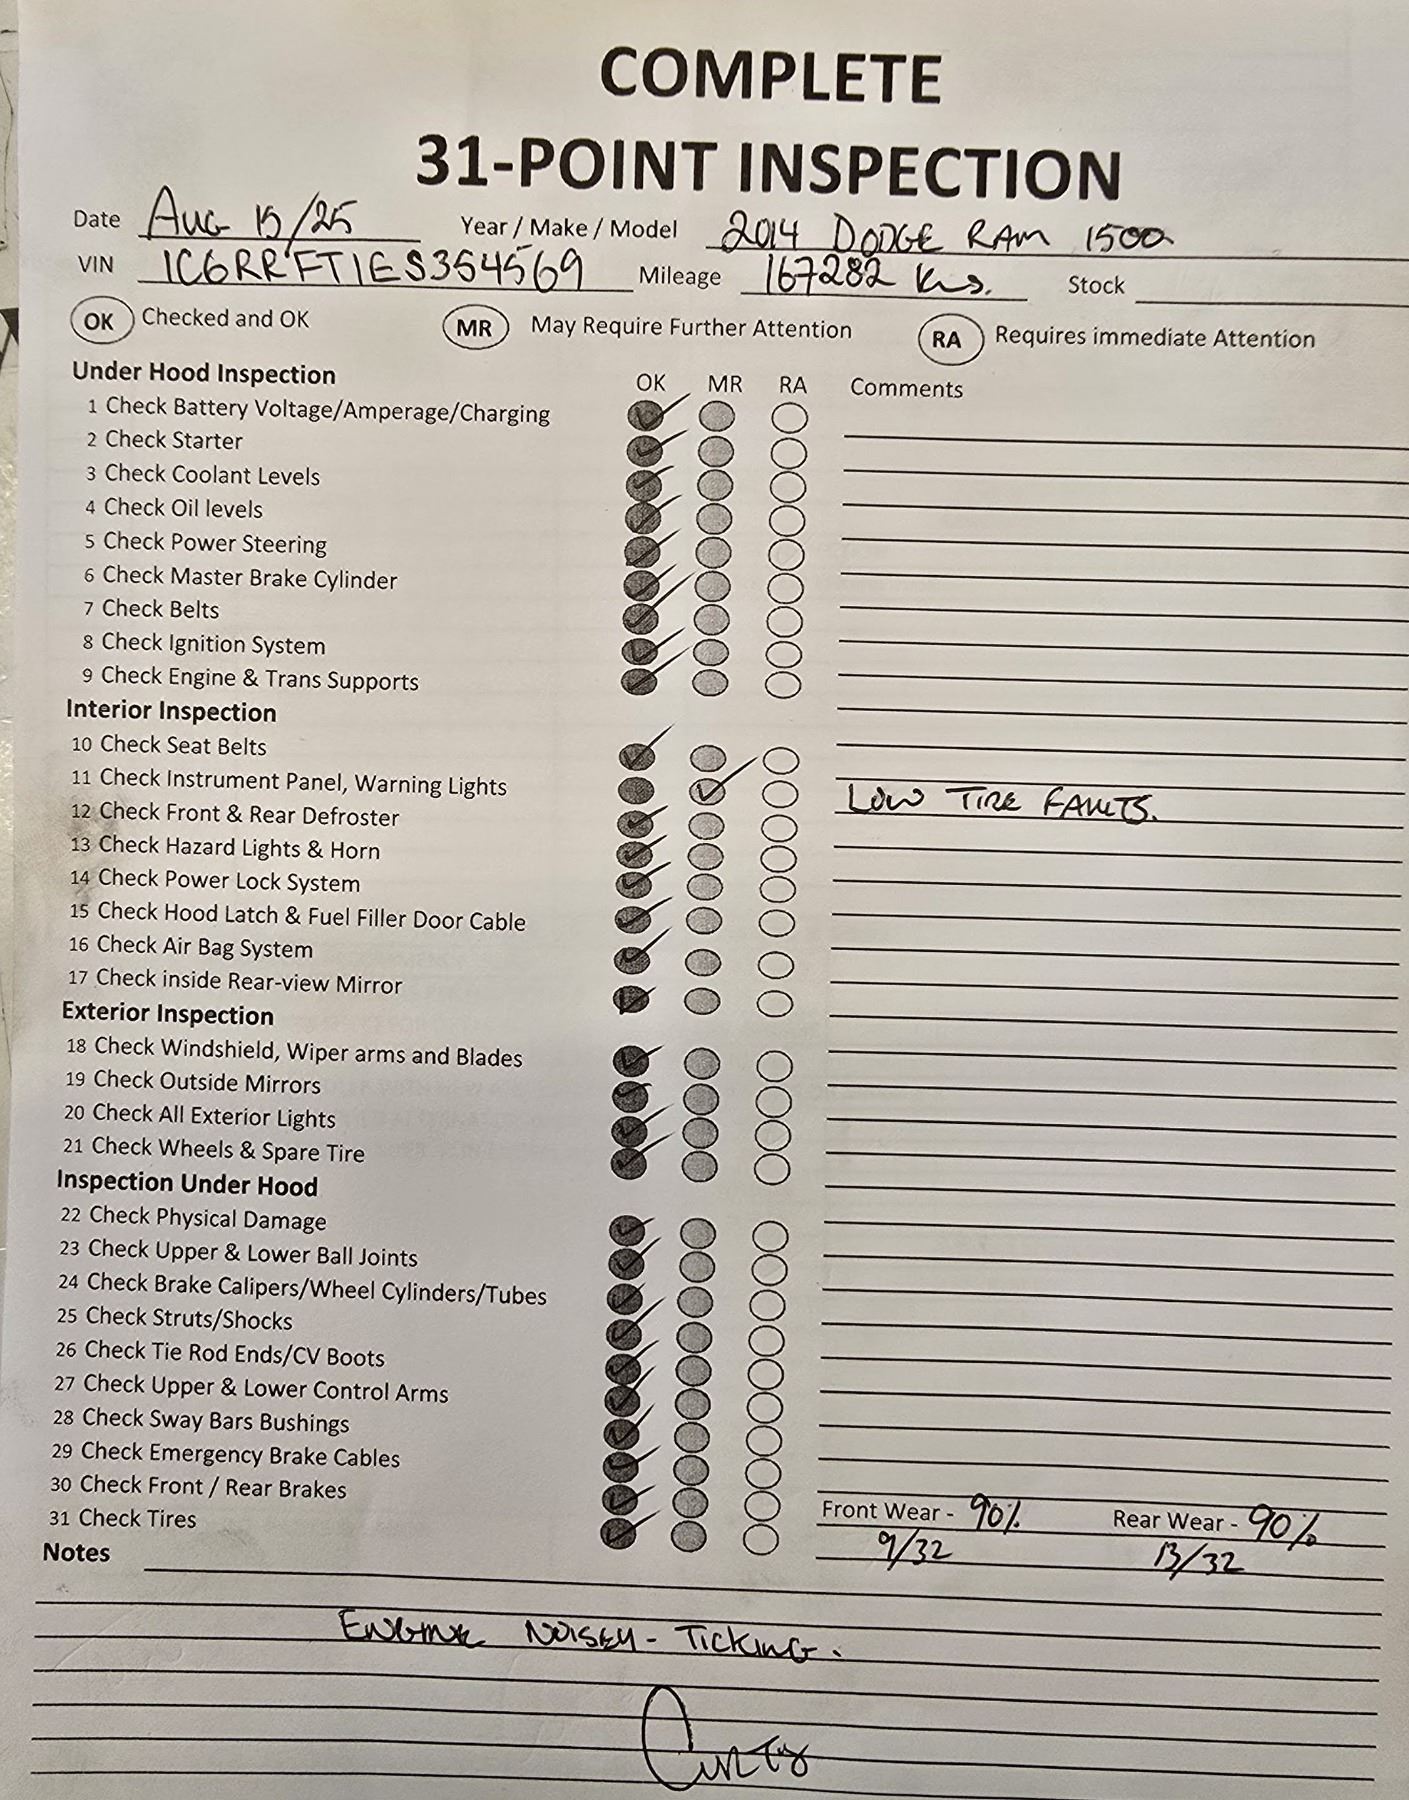 COMPLETE
31-POINT INSPECTION
Date Aug 15/25 Year / Make / Model 2014 DODGE RAM 1500
VIN 1C6RRFT1ES354569 Mileage 167282 Kms. Stock
OK Checked and OK MR May Require Further Attention RA Requires immediate Attention
Under Hood Inspection OK MR RA Comments
1 Check Battery Voltage/Amperage/Charging
2 Check Starter
3 Check Coolant Levels
4 Check Oil levels
5 Check Power Steering
6 Check Master Brake Cylinder
7 Check Belts
8 Check Ignition System
9 Check Engine & Trans Supports
Interior Inspection
10 Check Seat Belts
11 Check Instrument Panel, Warning Lights LOW TIRE FAULTS.
12 Check Front & Rear Defroster
13 Check Hazard Lights & Horn
14 Check Power Lock System
15 Check Hood Latch & Fuel Filler Door Cable
16 Check Air Bag System
17 Check inside Rear-view Mirror
Exterior Inspection
18 Check Windshield, Wiper arms and Blades
19 Check Outside Mirrors
20 Check All Exterior Lights
21 Check Wheels & Spare Tire
Inspection Under Hood
22 Check Physical Damage
23 Check Upper & Lower Ball Joints
24 Check Brake Calipers/Wheel Cylinders/Tubes
25 Check Struts/Shocks
26 Check Tie Rod Ends/CV Boots
27 Check Upper & Lower Control Arms
28 Check Sway Bars Bushings
29 Check Emergency Brake Cables
30 Check Front / Rear Brakes Front Wear - 90% Rear Wear - 90%
31 Check Tires 9/32 13/32
Notes
ENGINE NOISEY - TICKING.